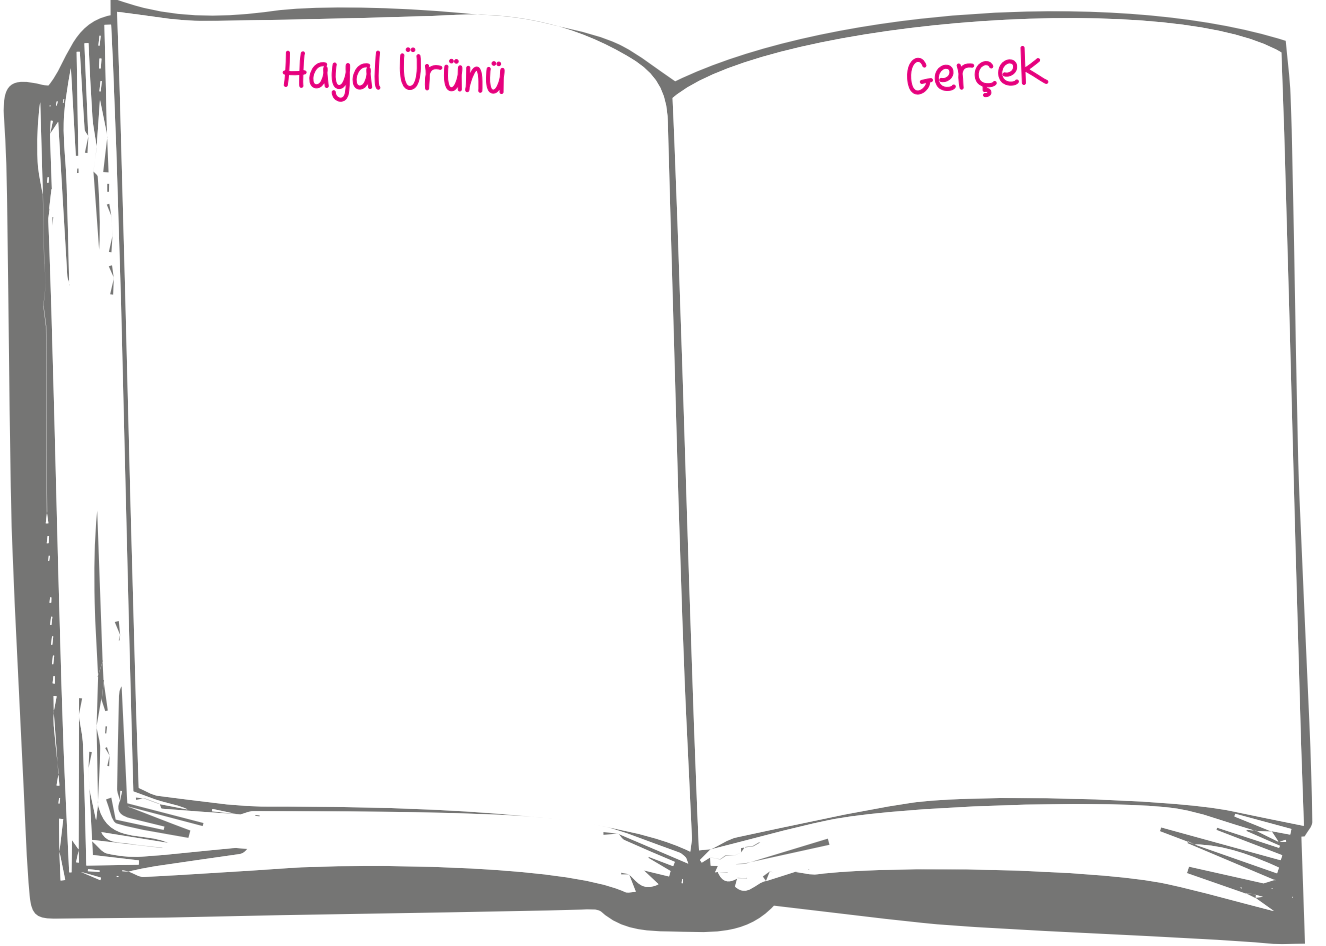 Hayal Ürünü
Gerçek